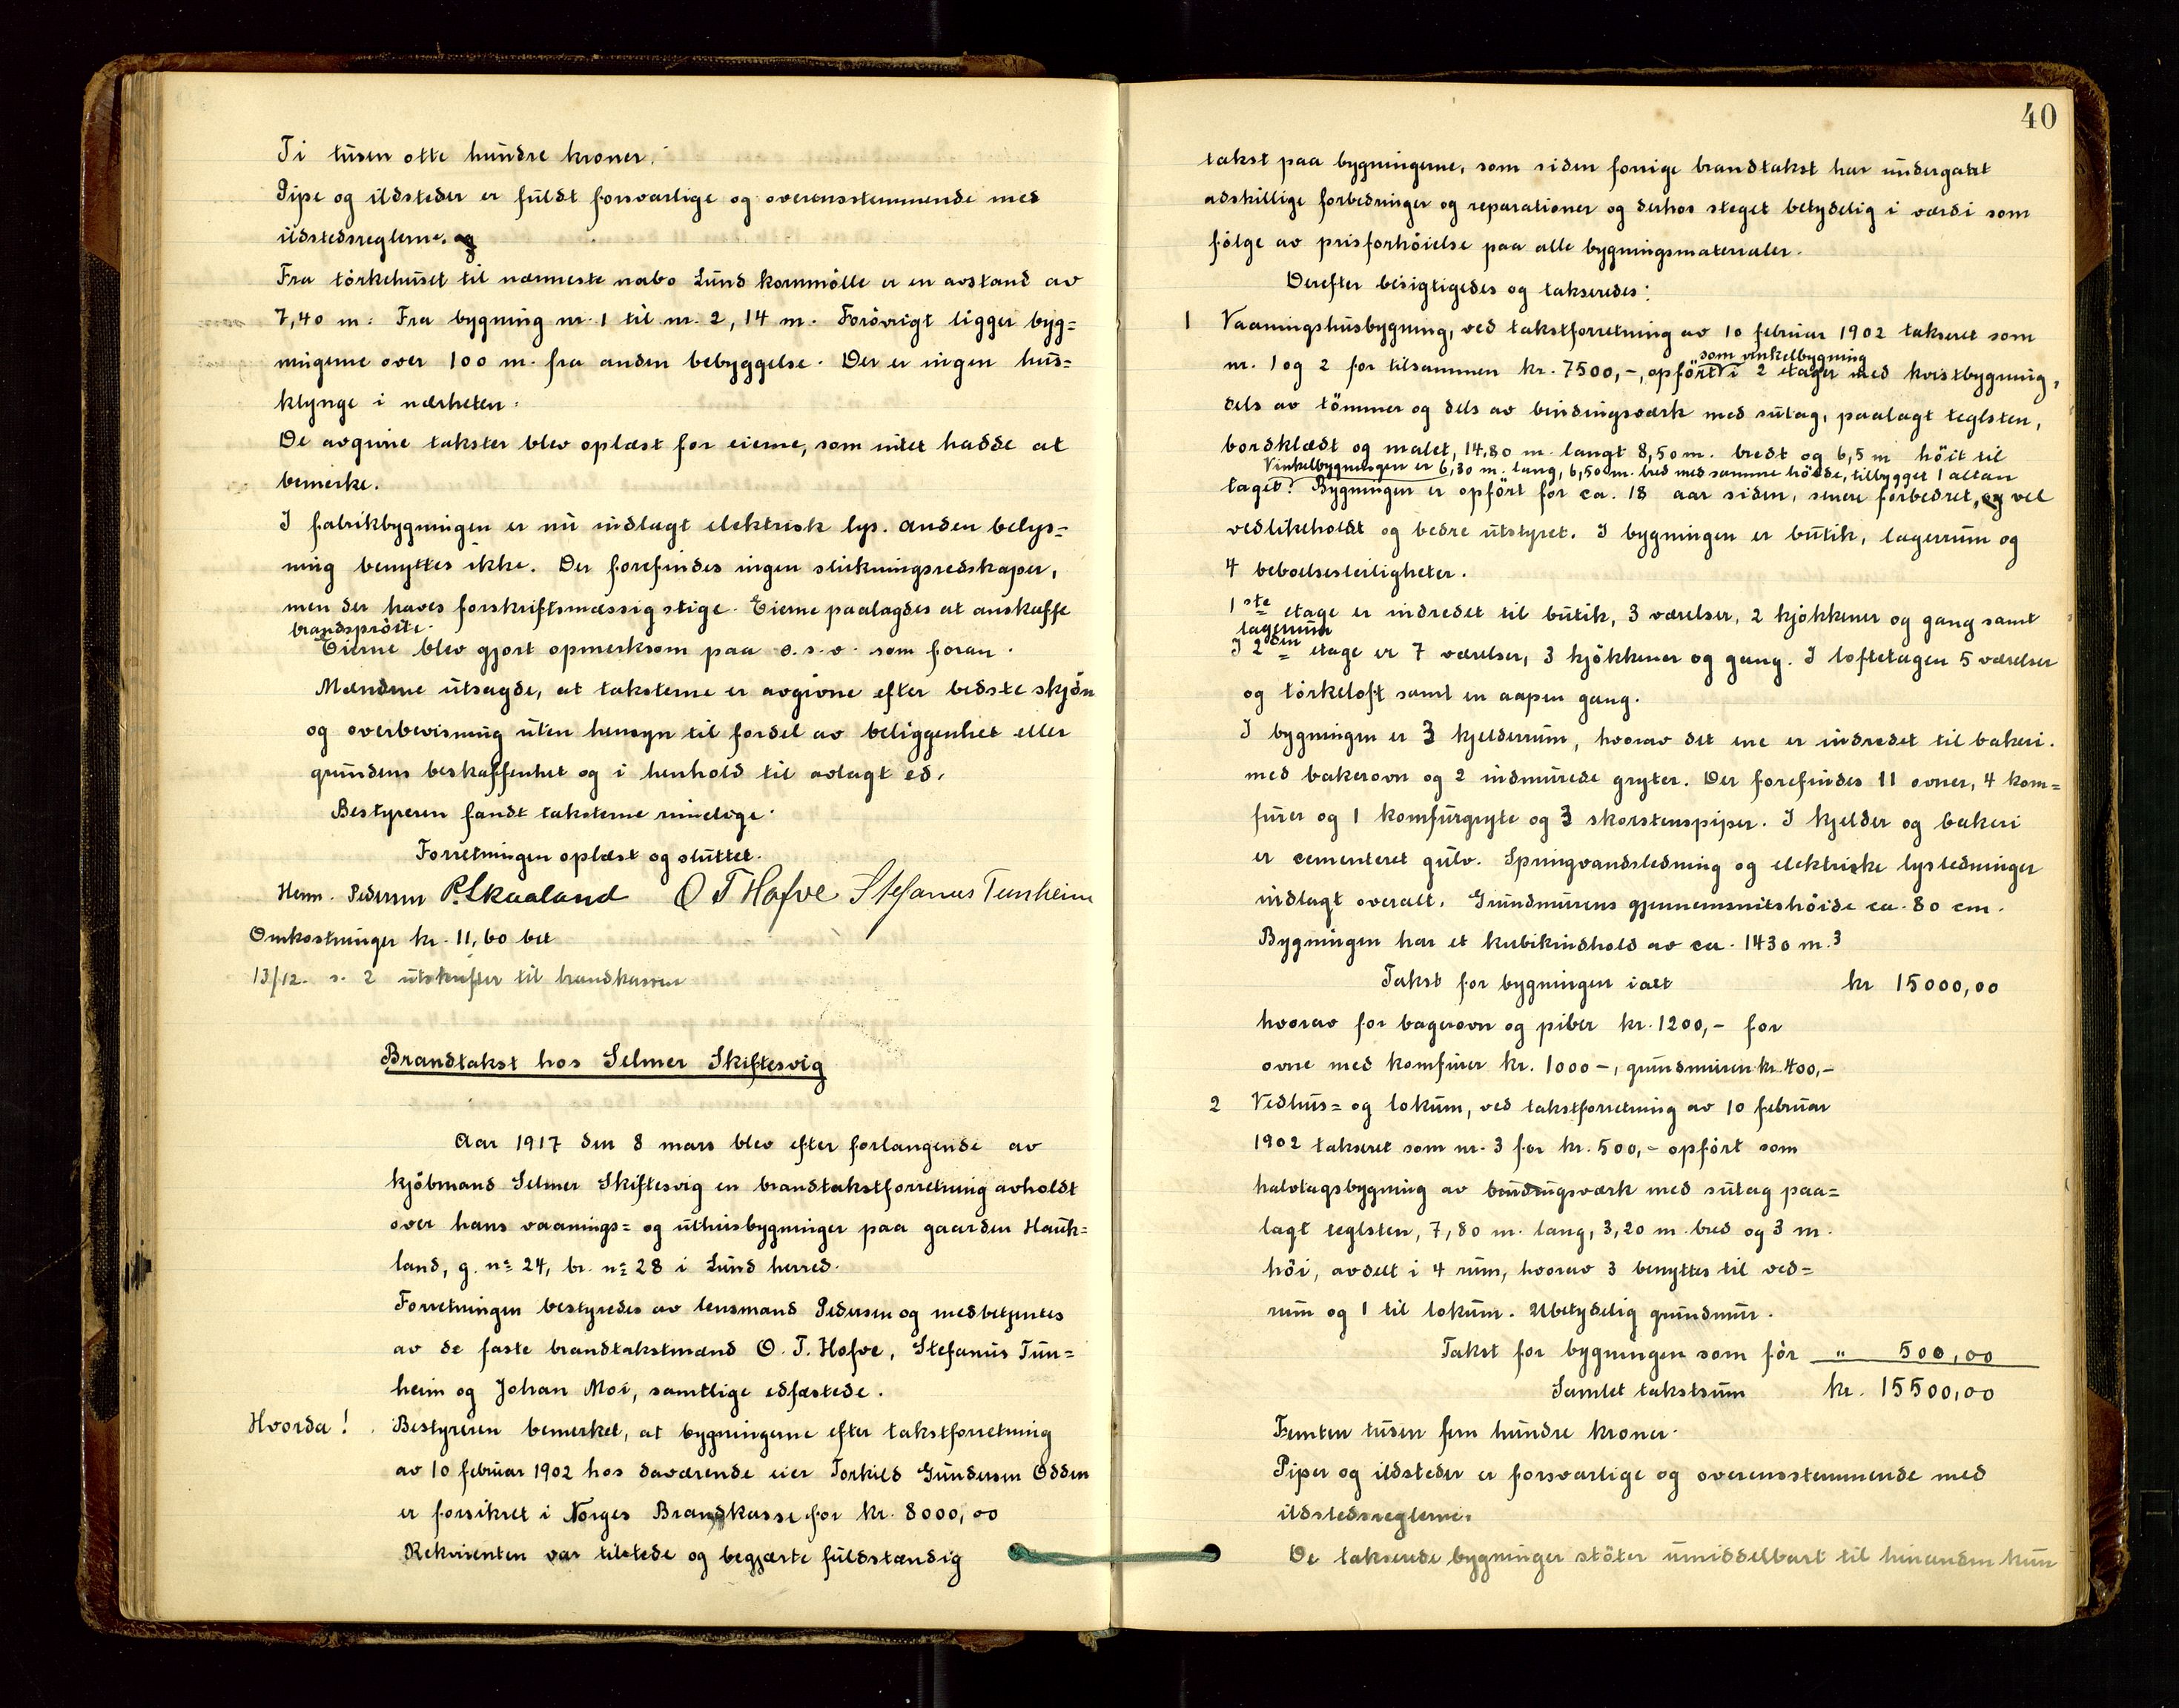 Ti tusen otte hundre kroner.
Pipe og ildsteder er fuldt forsvarlige og overensstemmende med
ildstedsreglerne.
Fra törkehuset til nærmeste nabo Lund kornmölle er en avstand av
7,40 m. Fra bygning nr. 1 til nr. 2, 14 m. Forövrigt ligger byg=
ningerne over 100 m. fra anden bebyggelse. Der er ingen hus=
klynge i nærheten.
De avgivne takster blev oplæst for eierne, som intet hadde at
bemerke.
I fabrikbygningen er nu indlagt elektrisk lys. Anden belys=
ning benyttes ikke. Der forefindes ingen slukningsredskaper,
men der haves forskriftsmæssig stige. Eierne paalagdes at anskaffe
brandspröite.
Eierne blev gjort opmerksom paa o.s.v. som foran.
Mændene utsagde, at taksterne er avgivne efter bedste skjön
og overbevisning uten hensyn til fordel av beliggenhet eller
grundens beskaffenhet og i henhold til avlagt ed.
Bestyreren fandt taksterne rimelige.
Forretningen oplæst og sluttet.
Herm. Pedersen P. Skaaland O T Hofve Stefanus Tunheim
Omkostninger kr. 11,60 bet
13/12. s. 2 utskrifter til brandkassen
Brandtakst hos Selmer Skiftesvig
Aar 1917 den 8 mars blev efter forlangende av
kjöbmand Selmer Skiftesvig en brandtakstforretning avholdt
over hans vaanings= og uthusbygninger paa gaarden Hauk=
land, g. no 24, br. no 28 i Lund herred.
Forretningen bestyredes av lensmand Pedersen og medbetjentes
av de faste brandtakstmænd O. T. Hofve, Stefanus Tun=
heim og Johan Moi, samtlige edfæstede.
Hvorda! Bestyreren bemerket, at bygningerne efter takstforretning
av 10 februar 1902 hos daværende eier Torkild Gundersen Ödden
er forsikret i Norges Brandkasse for kr. 8000,00
Rekvirenten var tilstede og begjærte fuldstændig
40
takst paa bygningerne, som siden forrige brandtakst har undergaat
adskillige forbedringer og reparationer og derhos steget betydelig i værdi som
fölge av prisforhöielse paa alle bygningsmaterialer.
Derefter besigtigedes og takseredes:
1 Vaaningshusbygning, ved takstforretning av 10 februar 1902 takseret som
som vinkelbygning
nr. 1 og 2 for tilsammen kr. 7500,-, opfört i 2 etager med kvistbygning,
dels av tömmer og dels av bindingsværk med sutag, paalagt teglsten,
bordklædt og malet, 14,80 m. langt 8,50 m. bredt og 6,5 m höit til
Vinkelbygningen er 6,30 m. lang, 6,50 m. bred med samme höide, tilbygget 1 altan
taget. Bygningen er opfört for ca. 18 aar siden, senere forbedret, og vel
vedlikeholdt og bedre utstyret. I bygningen er butik, lagerrum og
4 beboelsesleiligheter.
1ste etage er indredet til butik, 3 værelser, 2 kjökkener og gang samt
lagerrum
I 2den etage er 7 værelser, 3 kjökkener og gang. I loftetagen 5 værelser
og törkeloft samt en aapen gang.
I bygningen er 3 kjelderrum, hvorav det ene er indredet til bakeri.
med bakerovn og 2 indmurede gryter. Der forefindes 11 ovner, 4 kom=
furer og 1 komfurgryte og 3 skorstenspiper. I kjelder og bakeri
er cementeret gulv. Springvandsledning og elektriske lysledninger
indlagt overalt. Grundmurens gjennemsnitshöide ca. 80 cm.
Bygningen har et kubikindhold av ca. 1430 m.3
Takst for bygningen ialt kr 15000,00
hvorav for bagerovn og piber kr. 1200,- for
ovne med komfurer kr. 1000-, grundmuren kr 400,-
2 Vedhus= og lokum, ved takstforretning av 10 februar
1902 takseret som nr. 3 for kr. 500,- opfört som
halvtagsbygning av bindingsværk med sutag paa=
lagt teglsten, 7,80 m. lang, 3,20 m. bred og 3 m.
höi, avdelt i 4 rum, hvorav 3 benyttes til ved=
rum og 1 til lokum. Ubetydelig grundmur.
Takst for bygningen som för " 500,00
Samlet takstsum kr. 15500,00
Femten tusen fem hundre kroner.
Piper og ildsteder er forsvarlige og overensstemmende med
ildstedsreglerne.
De takserede bygninger stöter umiddelbart til hinanden kun